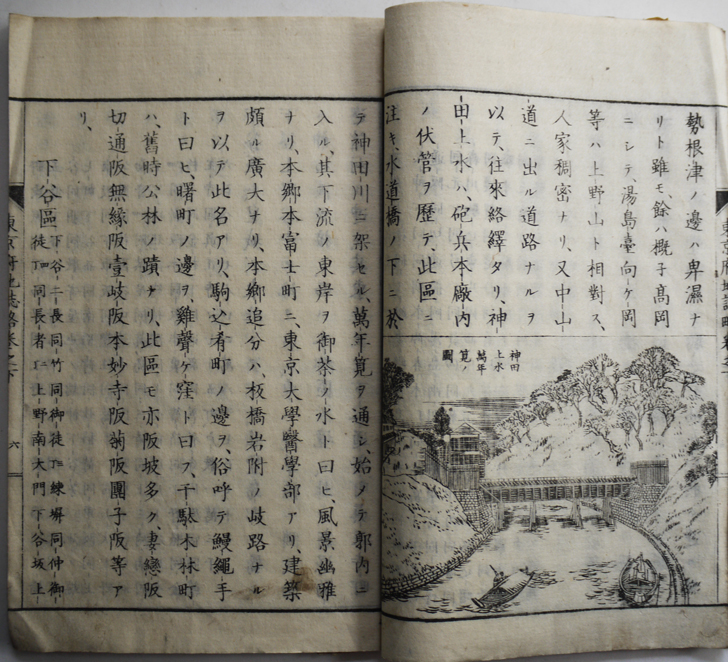 勢根津ノ邊ハ卑濕ナ
リト雖モ、餘ハ概子髙岡
ニシテ、湯島臺向ケ岡
等ハ上野山ト相對ス、
人家稠密ナリ、又中山
道ニ出ル道路ナルヲ
以テ、往來絡繹タリ、神
田上水ハ、砲兵本廠内
ノ伏管ヲ歷テ、此區ニ
注キ、水道橋ノ下ニ於
神田
上水
萬年
筧ノ
圖
テ神田川ニ架セル、萬年筧ヲ通シ、始メテ郭内ニ
入ル、其下流ノ東岸ヲ御茶ノ水ト曰ヒ、風景幽雅
ナリ、本郷本富士町ニ、東京大學醫學部アリ、建築
頗ル廣大ナリ、本郷追分ハ、板橋岩附ノ岐路ナル
ヲ以テ此名アリ、駒込肴町ノ邊ヲ、俗呼テ鰻繩手
ト曰ヒ、曙町ノ邊ヲ、雞聲ケ窪ト曰フ、千駄木林町
ハ、舊時公林ノ蹟ナリ、此區モ亦阪坡多ク、妻戀阪
切通阪無縁阪壹岐阪本妙寺阪菊阪團子阪等ア
リ、
下谷區
下谷二長同竹同御徒丁練塀同仲御
徒丁同長者丁上野南大門下谷坂上
東京府地誌略卷之下
六